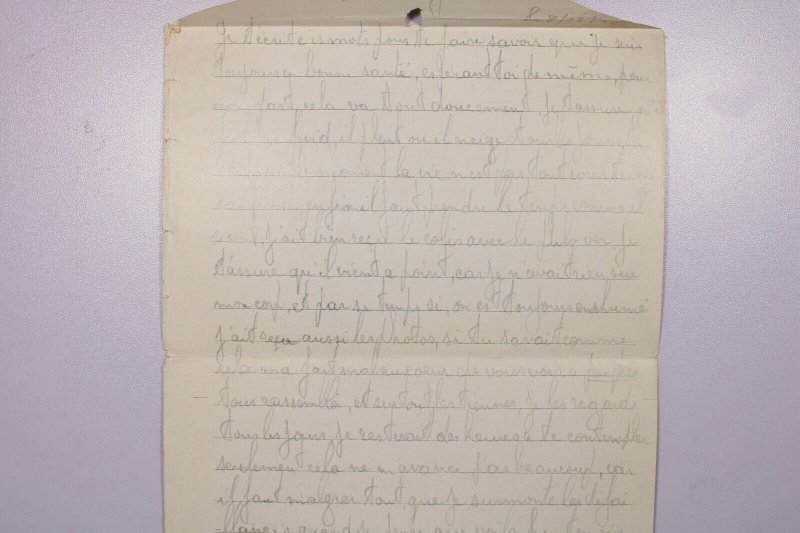 Je t'écrit c'es mots pour te faire savoir que je suis
toujours en bonne santé, espérant toi de même, pour
part, cela va tout doucement je t'assure qu'il
froid, il pleut ou il neige tous les jours, et
la vie n'est pas
enfin il faut prendre le temps comme il
vient, j'ait bien reçu le colis avec le pulover, Je
t'assure qu'il vient a point, car je n'avait rien sur
mon corp, et par se temps si, on est toujours enrhumé
j'ait reçu aussi les photos, si tu savait comme
cela ma fait mal au coeur de vous voir a peu près
tous rassemblé, et surtout les tiennes, je les regard
tous les jours, je resterait des heures a te contempler
seulement cela ne m'avance pas beaucoup, car
il faut malgrer tout, que je surmonte les défai
llances quand je pense que